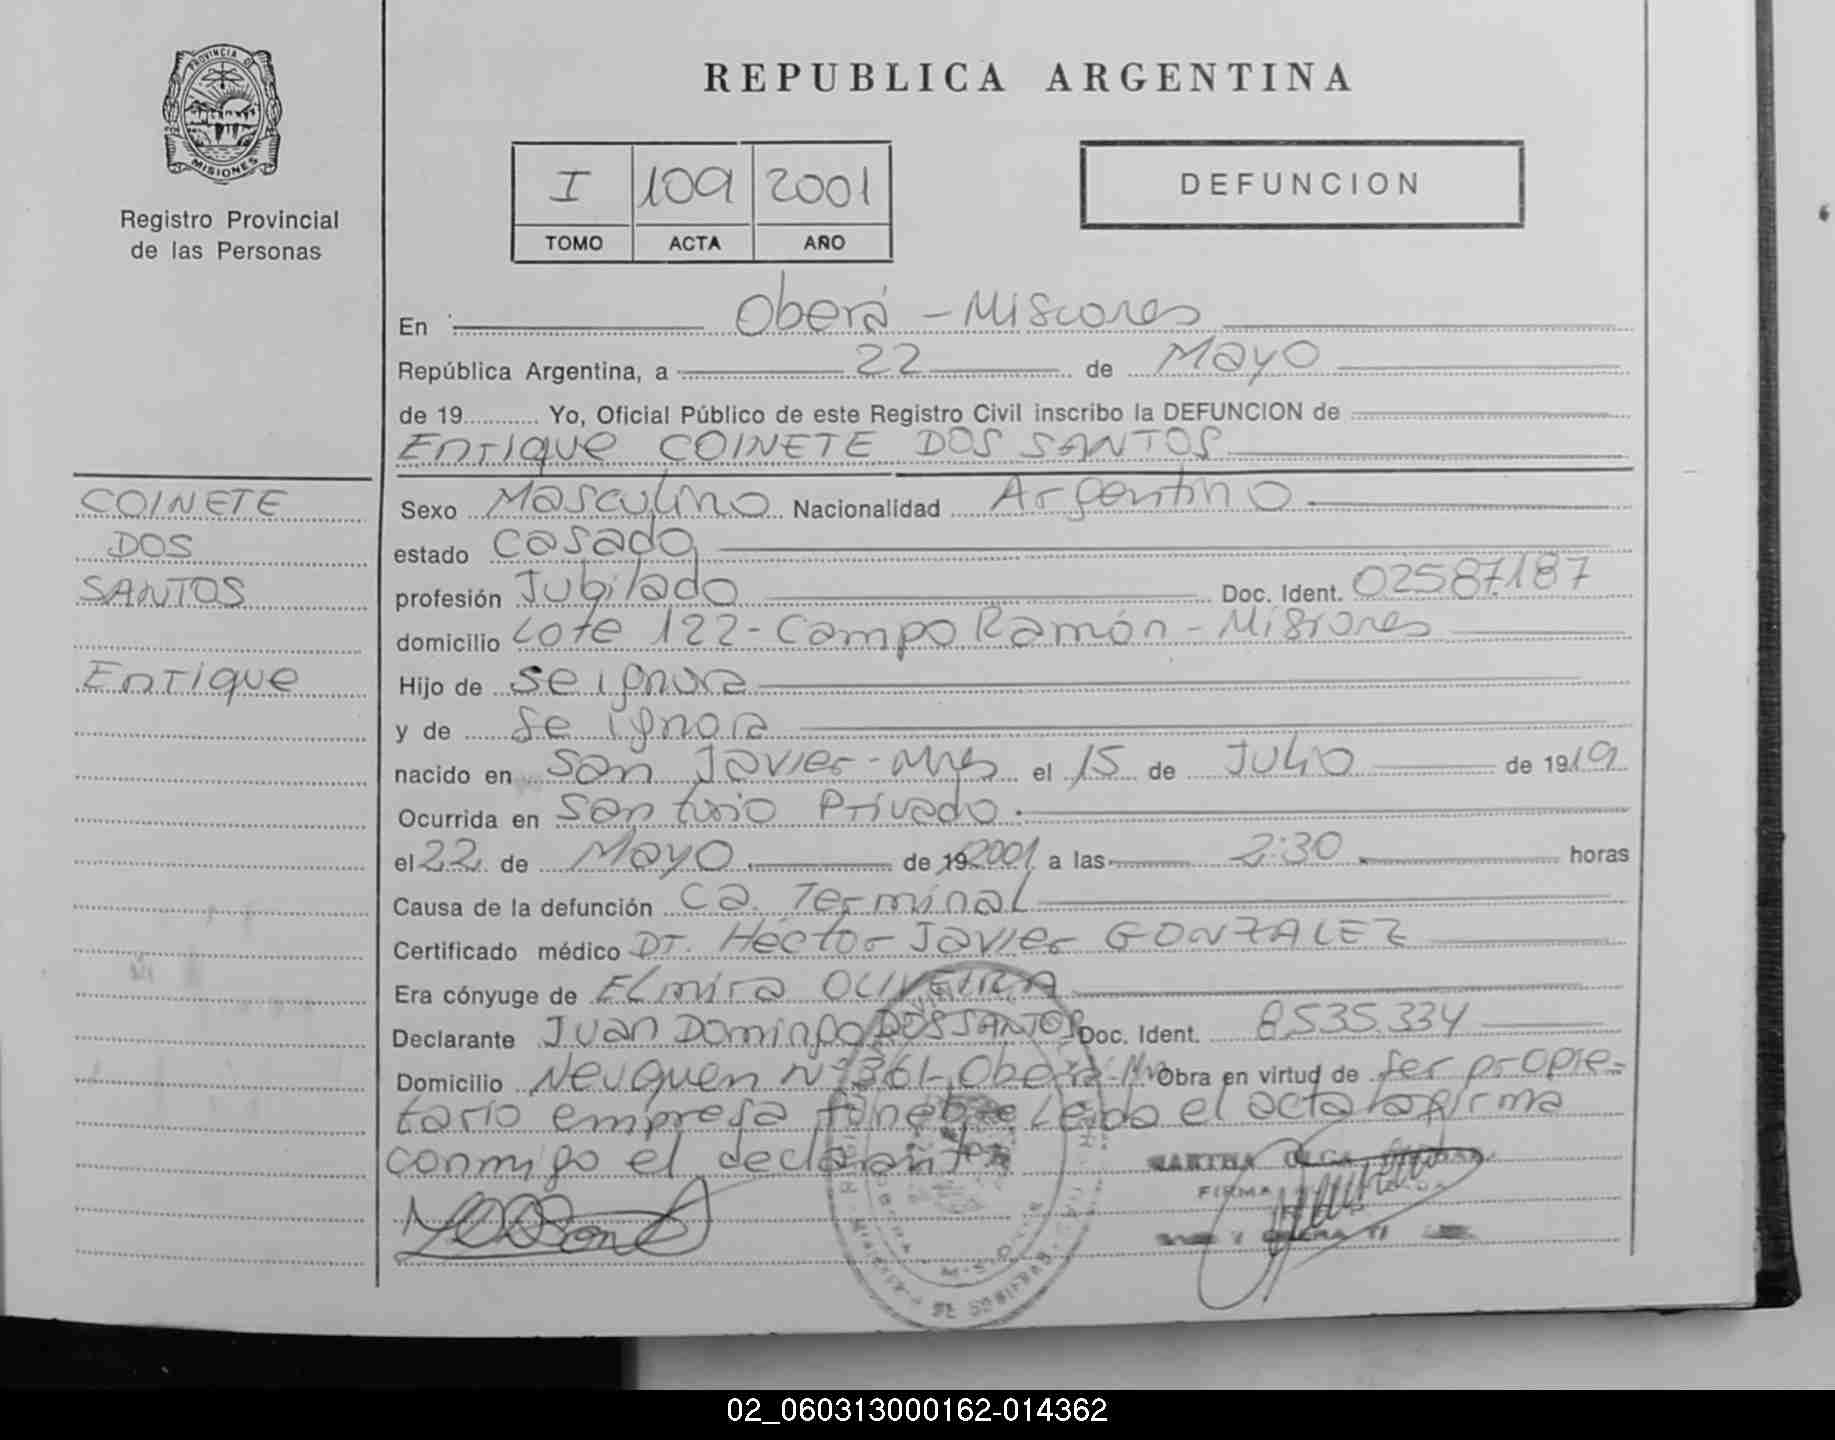 PROVINCIA DE
MISIONES
Registro Provincial
de las Personas
REPUBLICA ARGENTINA
I 109 2001
TOMO ACTA AÑO
DEFUNCION
En Oberá - Misiones
República Argentina, a 22 de Mayo
de 19 Yo, Oficial Público de este Registro Civil inscribo la DEFUNCION de
Enrique COINETE DOS SANTOS
COINETE
DOS
SANTOS
Enrique
Sexo Masculino Nacionalidad Argentino
estado Casado
profesión Jubilado Doc. Ident. 02587.187
domicilio Lote 122 - Campo Ramón - Misiones
Hijo de se ignora
y de se ignora
nacido en San Javier - Mnes el 15 de Julio de 1919
Ocurrida en Privado
el 22 de Mayo de 192001 a las 2:30 horas
Causa de la defunción Ca. Terminal
Certificado médico Dr. Héctor Javier GONZALEZ
Era cónyuge de Elmira OLIVEIRA
Declarante Juan Domingo DOS SANTOS Doc. Ident. 8.535.334
Domicilio Neuquen Nº 361 - Oberá - Mnes Obra en virtud de ser propie-
tario empresa fúnebre Leida el acta la firma
conmigo el declarante
MARTHA OLGA
FIRMA
02_060313000162-014362